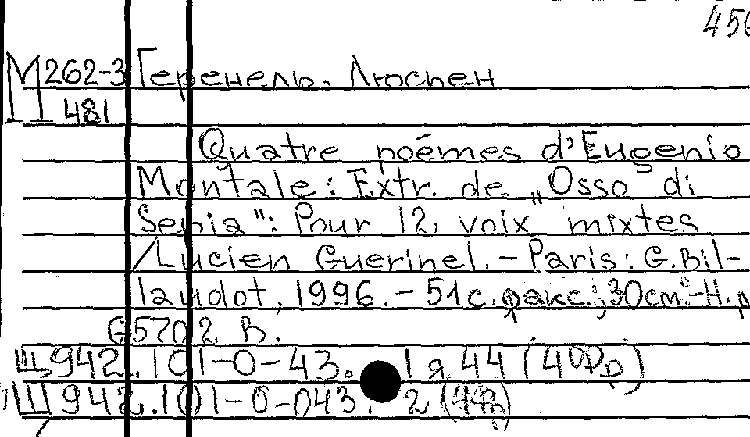 456
М 262-3 Геренель, Люсьен
481
Quatre poémes d'Eugenio
Montale: Extr. de „Osso di
Sepia": Pour 12 voix mixtes
/Lucien Guerinel. - Paris: G. Bil-
laudot, 1996. - 51 с. факс.; 30 см. - Н. р
G5702 B.
Щ942.101-0-43. 1 я 44 (40Рр)
Ш942.101-0-043. 2 (4я)